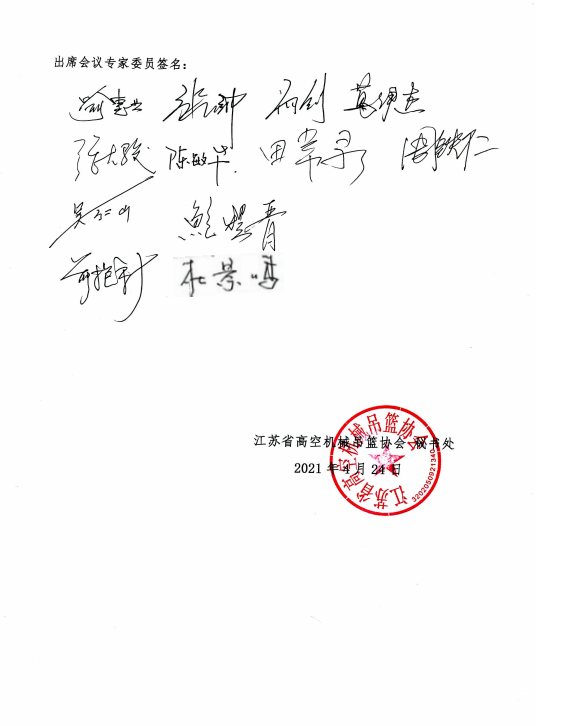 出席会议专家委员签名：
喻惠业
张大骏 陈敏华 田常录 周铁仁
吴仁山 鲍煜晋
杜景鸣
江苏省高空机械吊篮协会 秘书处
2021 年 4 月 24 日
江苏省高空机械吊篮协会
3202050921340